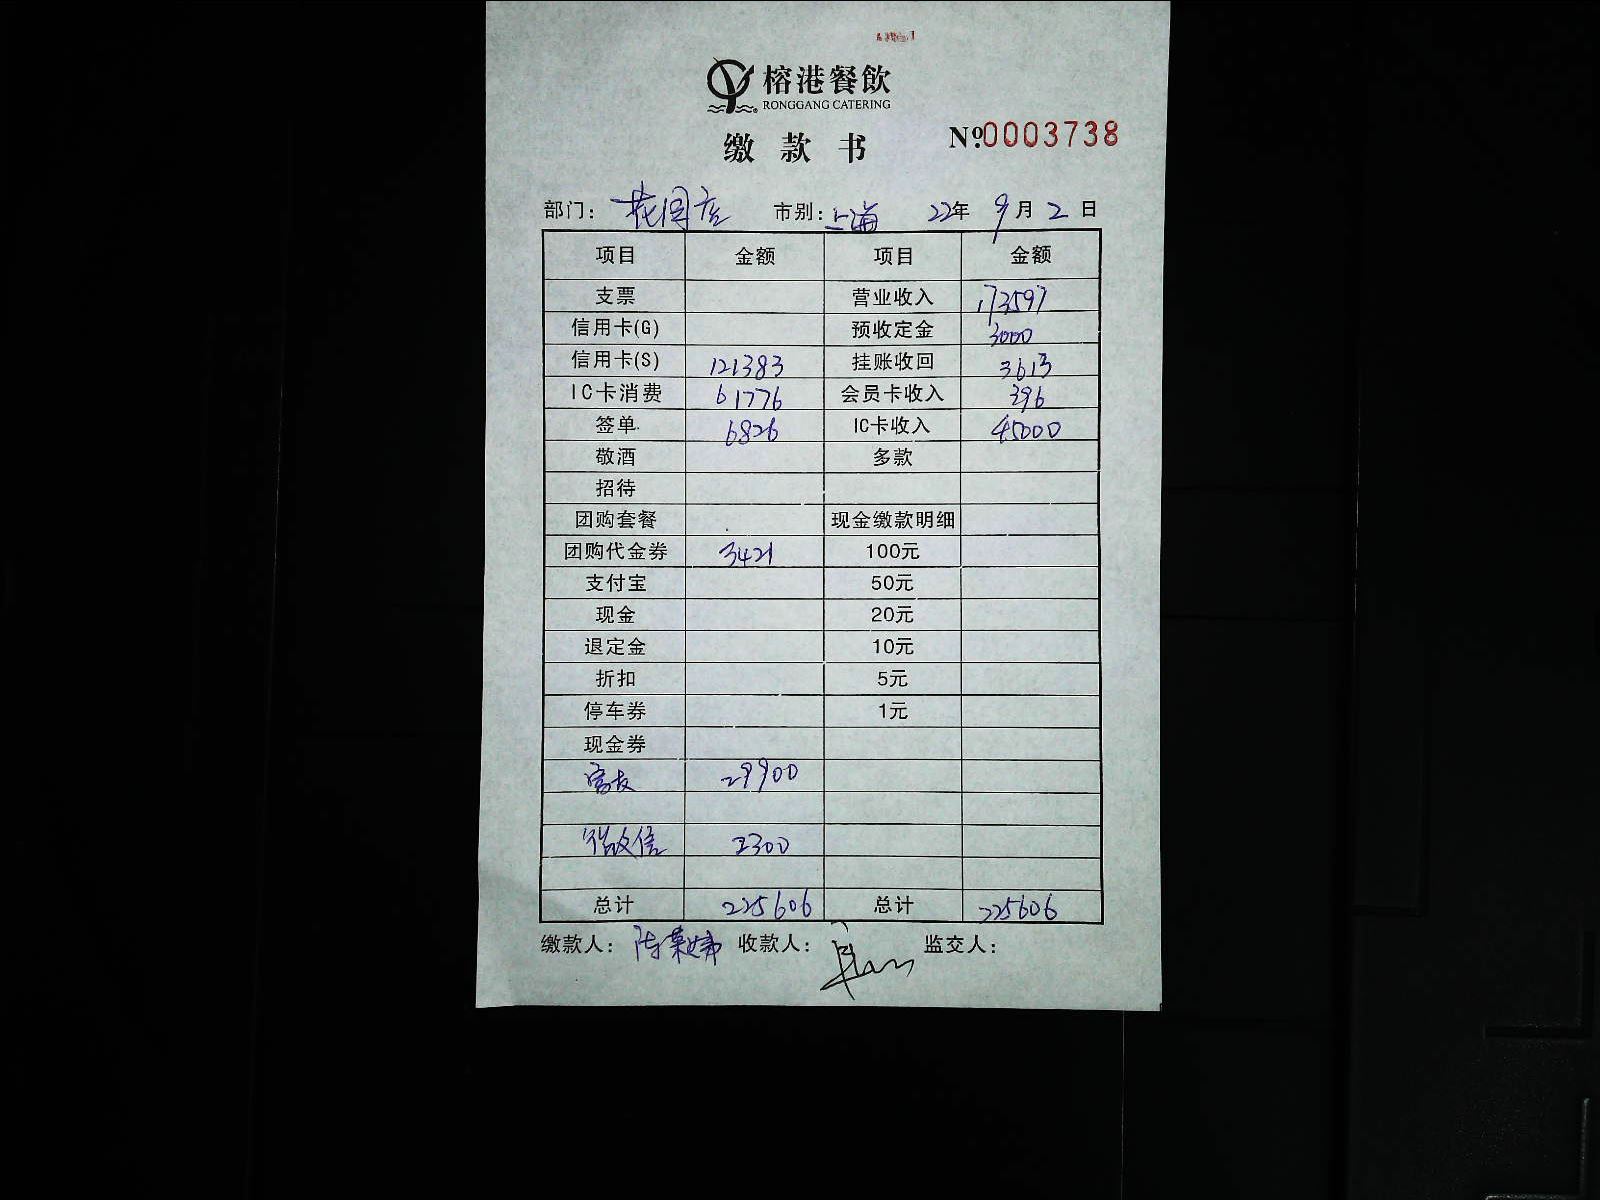 榕港餐飲
RONGGANG CATERING
缴款书 №0003738
部门：花园店 市别：上海 22年9月2日
项目 金额 项目 金额
支票 营业收入 173597
信用卡(G) 预收定金 3000
信用卡(S) 121383 挂账收回 3613
IC卡消费 61776 会员卡收入 396
签单 6826 IC卡收入 45000
敬酒 多款
招待
团购套餐 现金缴款明细
团购代金券 3421 100元
支付宝 50元
现金 20元
退定金 10元
折扣 5元
停车券 1元
现金券
29900
微信 2300
总计 225606 总计 225606
缴款人：陈 收款人： 监交人：